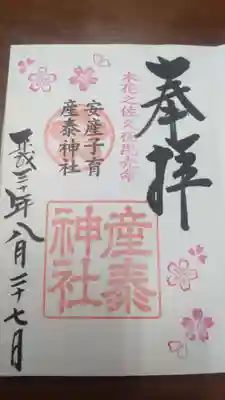 奉拝
木花之佐久夜毘売命
安産子育
産泰神社
産泰
神社
平成三十年八月二十七日